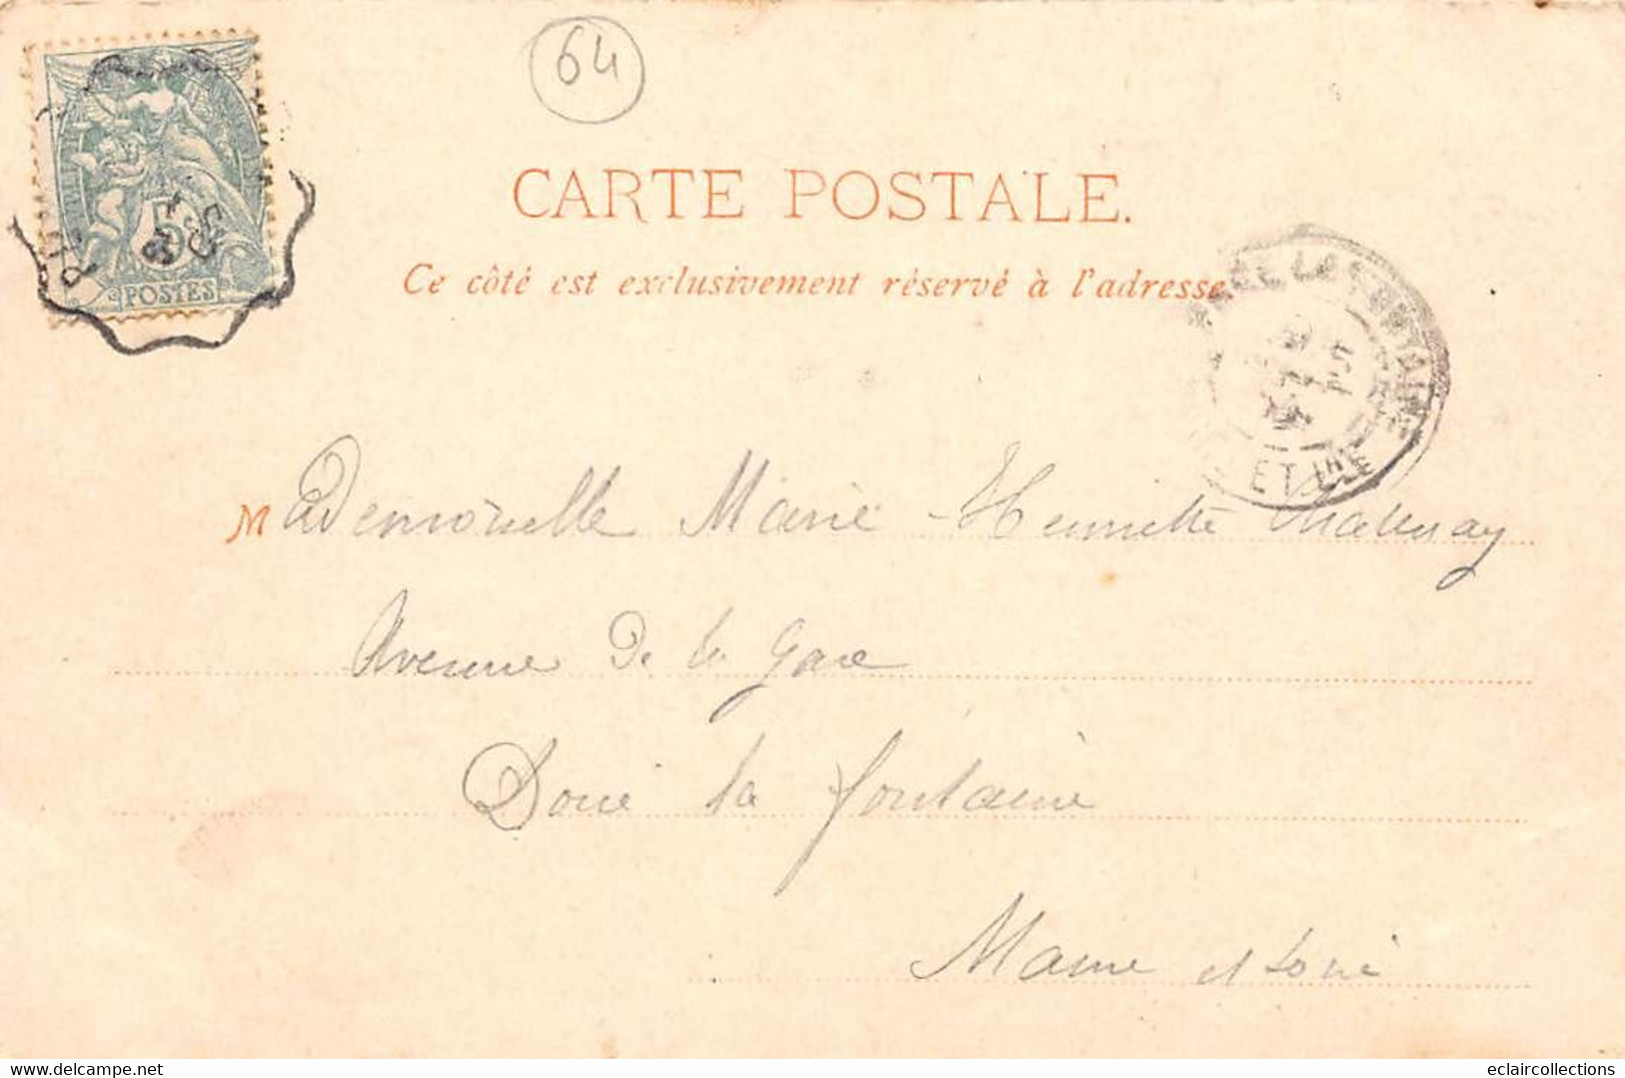 64
CARTE POSTALE.
Ce côté est exclusivement réservé à l'adresse.
5c
POSTES
ET
Mademoiselle Marie-Henriette
Avenue De la Gare
Doué la fontaine
Maine et Loire
eclaircollections